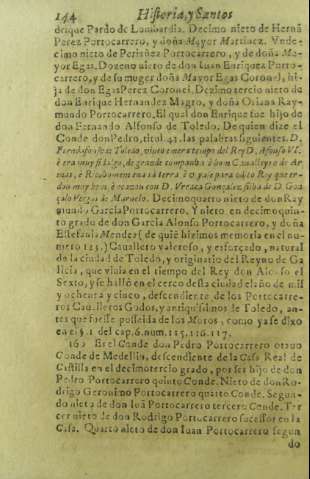 144 Historia, y Santos
drique Pardo de Lombardia. Decimo nieto de Hernã
Perez Portocarrero, y doña Mayor Martinez. Vnde-
cimo nieto de Periañez Portocarrero, y de doña Ma-
yor Egas. Dozeno nieto de don Iuan Enriquez Porto-
carrero, y de su muger doña Mayor Egas Coronel, hi-
ja de don Egas Perez Coronel. Dezimotercio nieto de
don Enrique Hernandez Magro, y doña Oriana Ray-
mundo Portocarrero. El qual don Enrique fue hijo de
don Fernando Alfonso de Toledo. De quien dize el
Conde don Pedro, titul. 43. las palabras siguientes. D.
Fernãdafonso de Toledo, viuiò em o tempo del Rey D. Afonso VI.
è era muy fidalgo, de grande companha à bom Caualleyro de Ar-
mas, è Ricohomem en sà terra
con D. Vrraca Gonçalez, filha de D. Gon
çalo Viegas de Marnelo. Decimoquarto nieto de don Ray
mundo Garcia Portocarrero. Y nieto en decimoquin-
to grado de don Garcia Alfonso Portocarrero, y doña
Estefania Mendez (de quiẽ hizimos memoria en el nu-
mero 125.) Cauallero valeroso, y esforçado, natural
de la ciudad de Toledo, y originario del Reyno de Ga
licia, que viuia en el tiempo del Rey don Alonso el
Sexto, y se hallò en el cerco desta ciudad el año de mil
y ochenta y cinco, descendiente de los Portocarre-
ros Caualleros Godos, y antiquissimos de Toledo, an-
tes que fuesse posseida de los Moros, como ya se dixo
en el §. 1. del cap. 6. num. 115. 116. 117.
Es el Conde don Pedro Portocarrero otauo
Conde de Medellin, descendiente de la Casa Real de
Castilla en el decimotercio grado, por ser hijo de don
Pedro Portocarrero quinto Conde. Nieto de don Ro-
drigo Geronimo Portocarrero quarto Conde. Segun-
do nieto de don Iuã Portocarrero tercero Conde. Ter
cer nieto de don Rodrigo Portocarrero sucessor en la
Casa. Quarto nieto de don Iuan Portocarrero segun
do